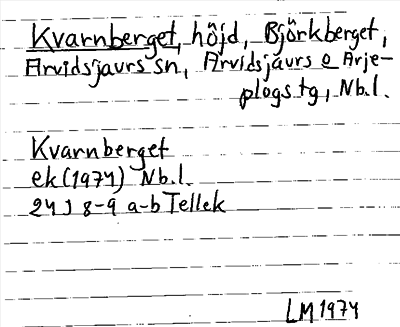 Kvarnberget, höjd, Björkberget,
Arvidsjaurs sn, Arvidsjaurs o Arje-
plogs tg, Nb.l.
Kvarnberget
ek (1974) Nb.l.
24J 8-9 a-b Tellek
LM 1974